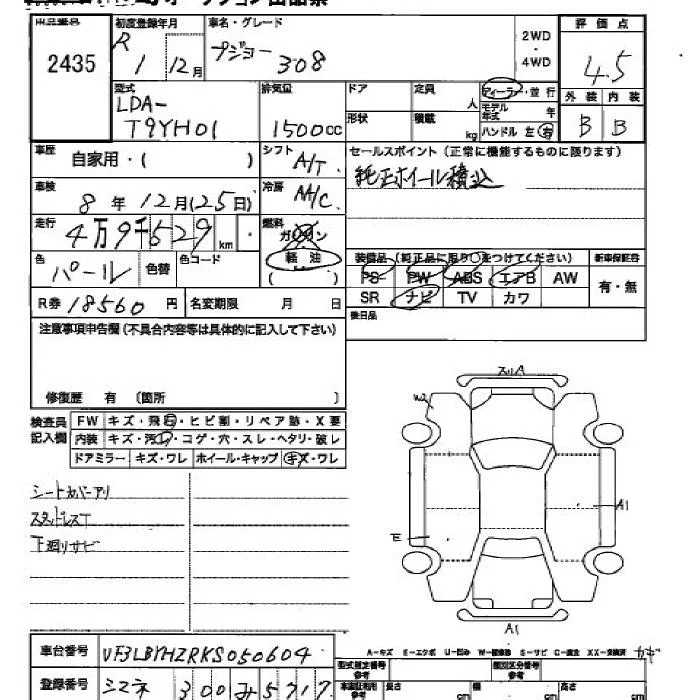 2435
初度登録年月
R 1 12月
車名・グレード
プジョー 308
2WD
・
4WD
評価点
4.5
外装 内装
B B
型式
LDA-
T9YH01
排気量
1500cc
ドア
定員
人
形状
積載
kg
ディーラー・並行
モデル年式
年
ハンドル 左 右
車歴
自家用・( )
シフト
A/T
セールスポイント(正常に機能するものに限ります)
純正ホイール積込
車検
8年12月(25日)
冷房
A/C
走行
4万9千529km
燃料
ガソリン
軽油
( )
色
パール
色替
色コード
装備品(純正品に限り○をつけてください)
新車保証書
PS PW ABS エアB AW
SR ナビ TV カワ
有・無
R券 18560円
名変期限 月 日
後日品
注意事項申告欄(不具合内容等は具体的に記入して下さい)
修復歴 有 〔箇所 〕
検査員
記入欄
FW キズ・飛石・ヒビ割・リペア跡・X要
内装 キズ・汚れ・コゲ・穴・スレ・ヘタリ・破レ
ドアミラー キズ・ワレ ホイール・キャップ キズ・ワレ
シートカバーアリ
スタッドレスT
下廻りサビ
スリA
W2
A1
E
A1
車台番号
VF3LBYHZRKS050604
登録番号
シマネ 300 み 5717
A-キズ E-エクボ U-凹み
型式指定番号
参考
類別区分番号
参考
長さ cm
幅 cm
高さ cm